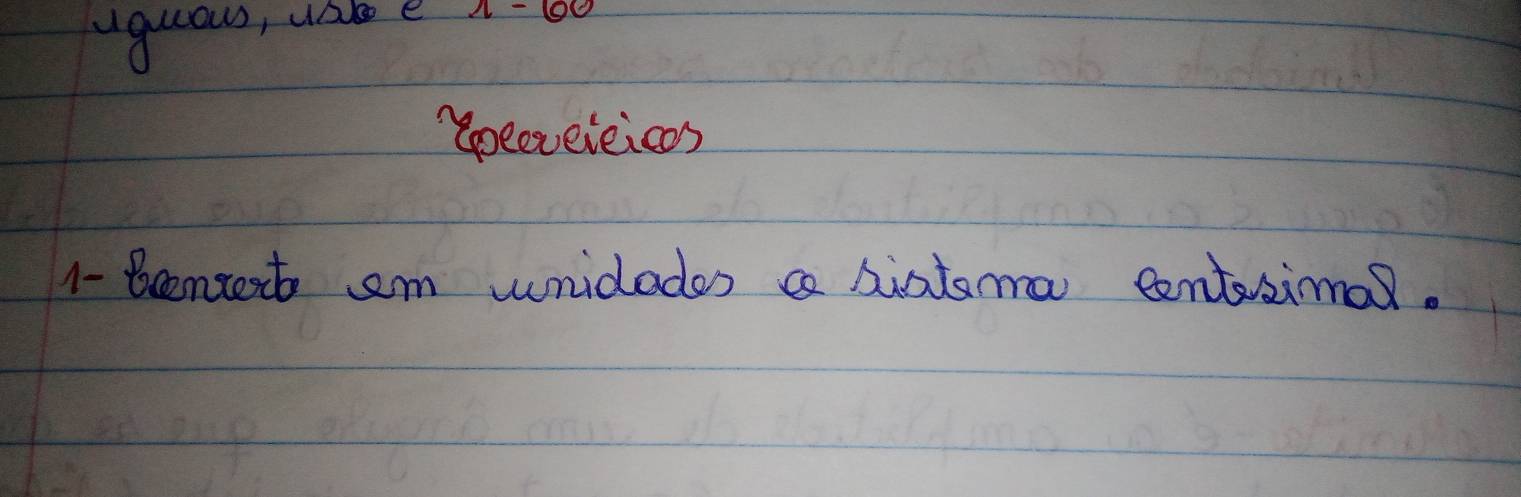 iguais, isto é 1 - 60
Exercícios
1- Converta em unidades o sistema centesimal.